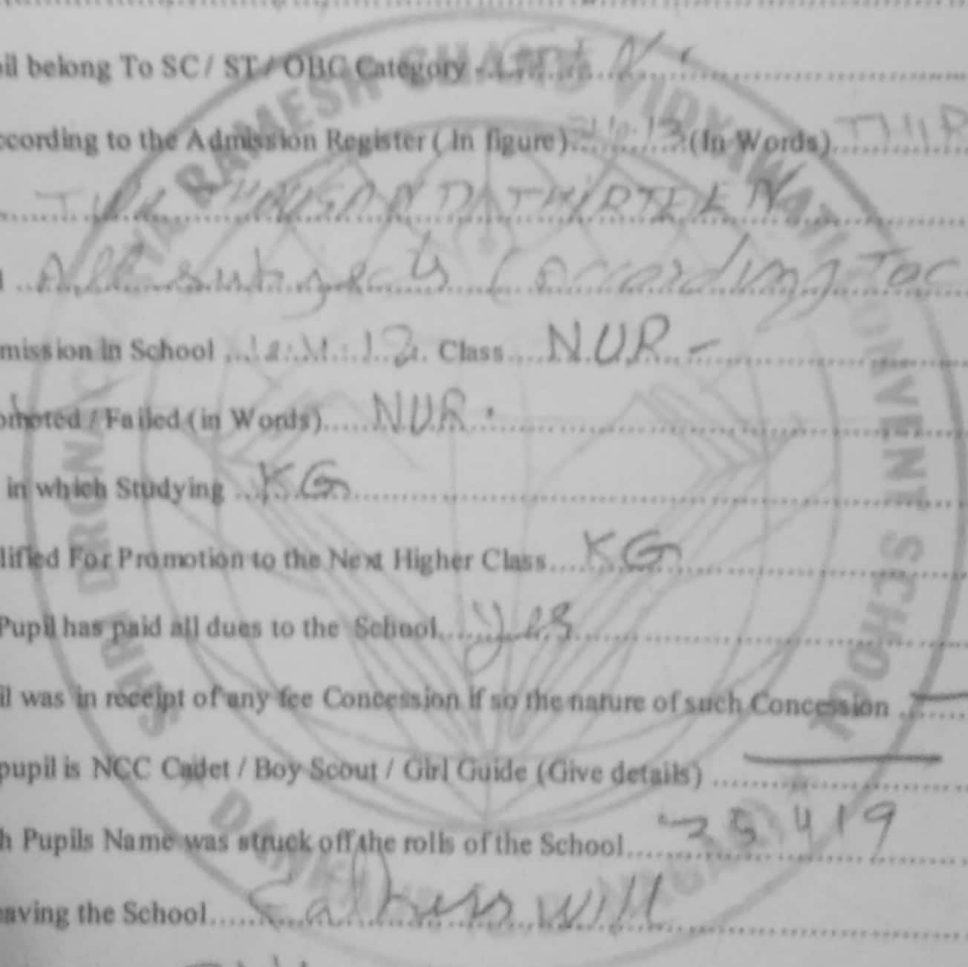 il belong To SC/ ST/ OBC Category
ccording to the Admission Register ( In figure) (In Words) THIR
THOUSAND THIRTEEN
All subjects According Toc
mission in School Class NUR -
omoted / Failed (in Words) NUR.
in which Studying KG
lified For Promotion to the Next Higher Class KG
Pupil has paid all dues to the School. yes
il was in receipt of any fee Concession if so the nature of such Concession
pupil is NCC Cadet / Boy Scout / Girl Guide (Give details)
h Pupils Name was struck off the rolls of the School
eaving the School will
RAMESH VIDYAWATI CONVENT SCHOOL